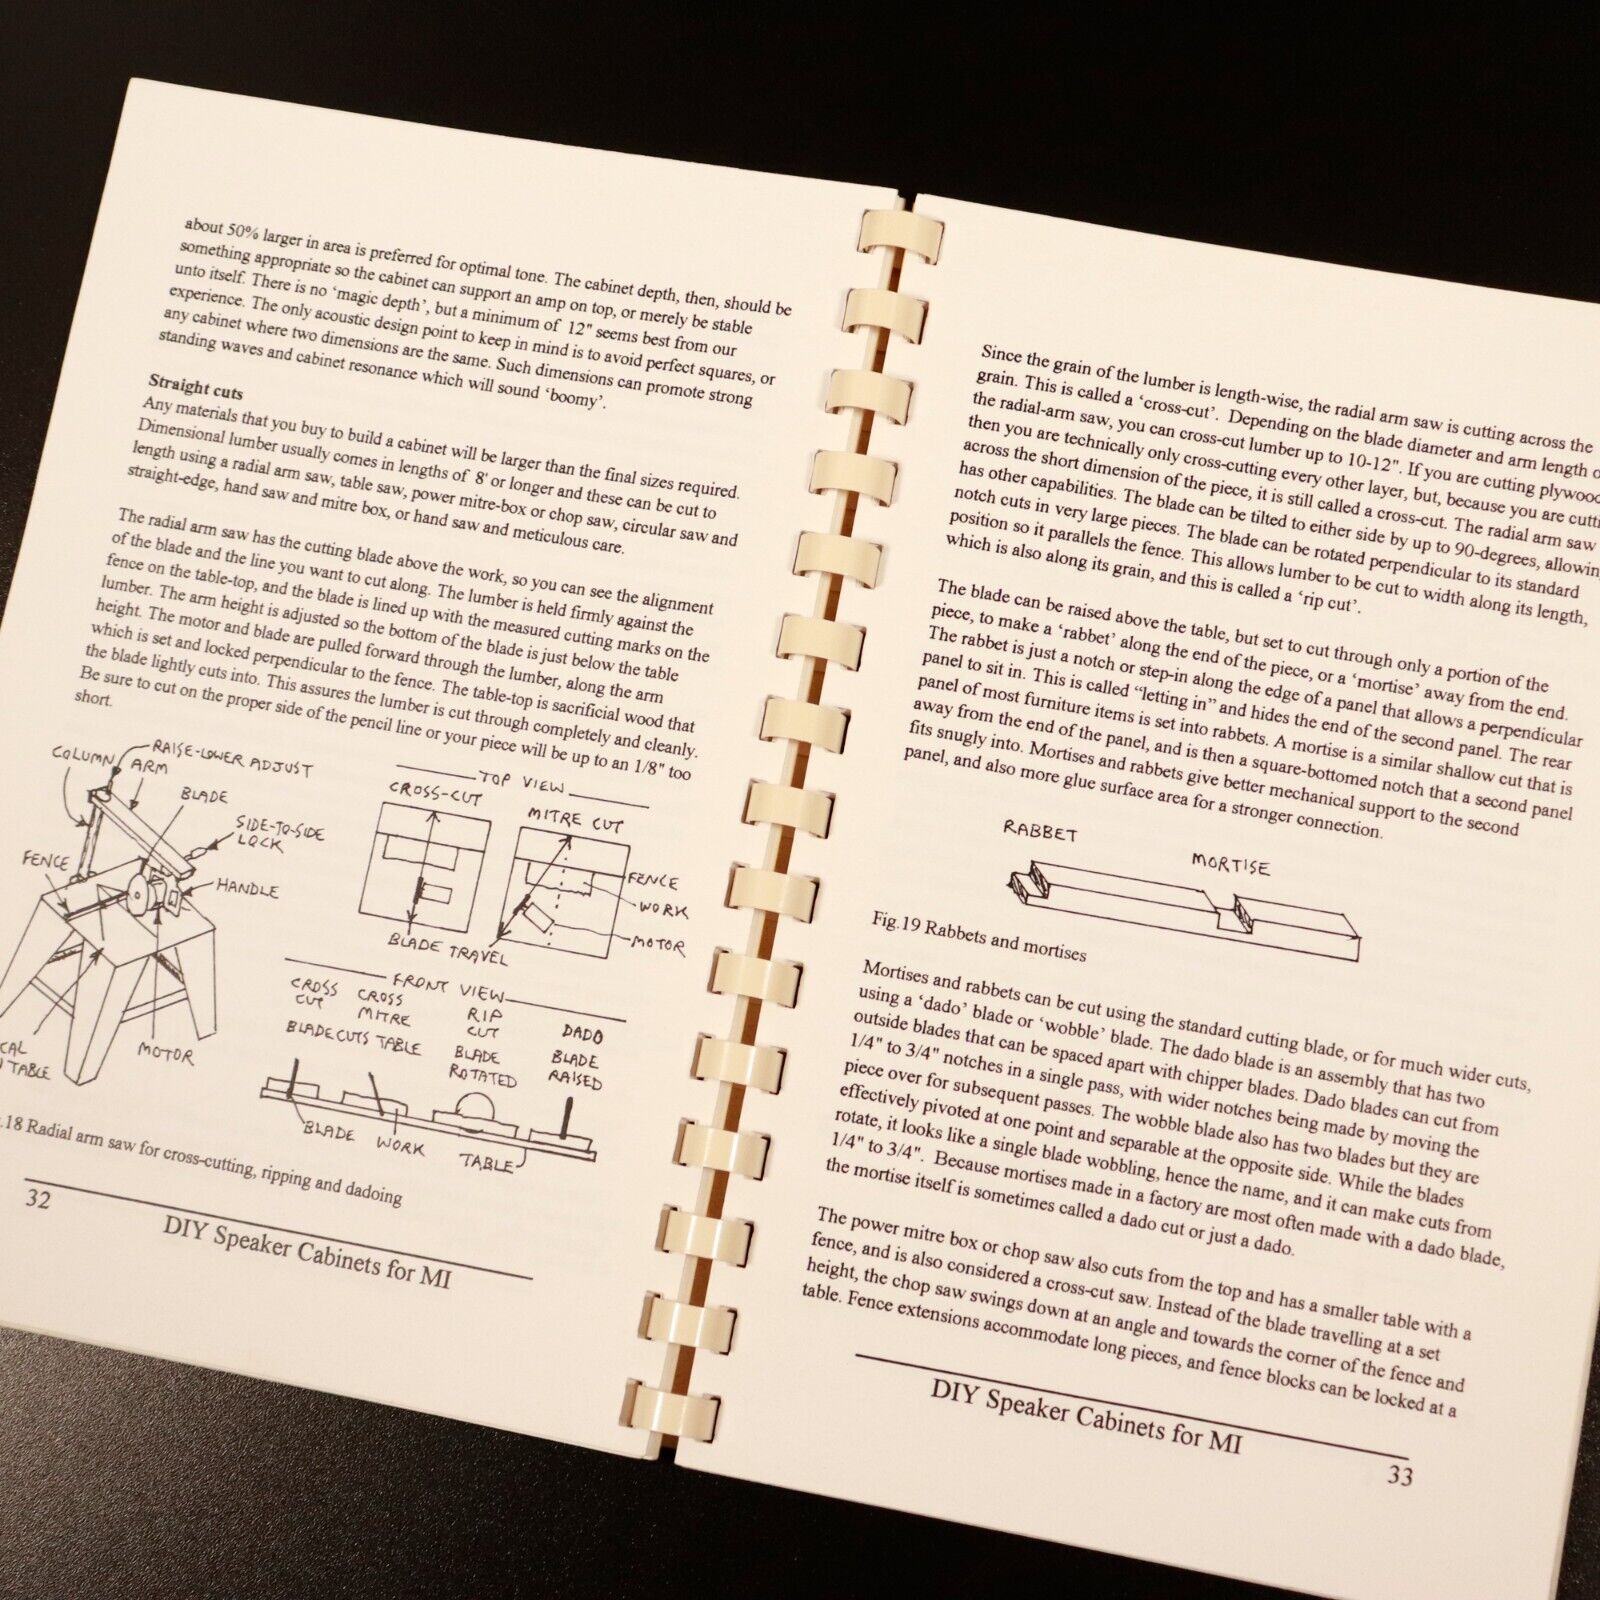 about 50% larger in area is preferred for optimal tone. The cabinet depth, then, should be
something appropriate so the cabinet can support an amp on top, or merely be stable
unto itself. There is no 'magic depth', but a minimum of 12" seems best from our
experience. The only acoustic design point to keep in mind is to avoid perfect squares, or
any cabinet where two dimensions are the same. Such dimensions can promote strong
standing waves and cabinet resonance which will sound 'boomy'.
Straight cuts
Any materials that you buy to build a cabinet will be larger than the final sizes required.
Dimensional lumber usually comes in lengths of 8' or longer and these can be cut to
length using a radial arm saw, table saw, power mitre-box or chop saw, circular saw and
straight-edge, hand saw and mitre box, or hand saw and meticulous care.
The radial arm saw has the cutting blade above the work, so you can see the alignment
of the blade and the line you want to cut along. The lumber is held firmly against the
fence on the table-top, and the blade is lined up with the measured cutting marks on the
lumber. The arm height is adjusted so the bottom of the blade is just below the table
height. The motor and blade are pulled forward through the lumber, along the arm
which is set and locked perpendicular to the fence. The table-top is sacrificial wood that
the blade lightly cuts into. This assures the lumber is cut through completely and cleanly.
Be sure to cut on the proper side of the pencil line or your piece will be up to an 1/8" too
short.
COLUMN
RAISE-LOWER ADJUST
ARM
BLADE
SIDE-TO-SIDE
LOCK
FENCE
HANDLE
CAL
TABLE
MOTOR
TOP VIEW
CROSS-CUT
MITRE CUT
FENCE
WORK
MOTOR
BLADE TRAVEL
FRONT VIEW
CROSS
CUT
CROSS
MITRE
RIP
CUT
DADO
BLADE CUTS TABLE
BLADE
ROTATED
BLADE
RAISED
BLADE
WORK
TABLE
.18 Radial arm saw for cross-cutting, ripping and dadoing
32
DIY Speaker Cabinets for MI
Since the grain of the lumber is length-wise, the radial arm saw is cutting across the
grain. This is called a 'cross-cut'. Depending on the blade diameter and arm length o
the radial-arm saw, you can cross-cut lumber up to 10-12". If you are cutting plywood
then you are technically only cross-cutting every other layer, but, because you are cutti
across the short dimension of the piece, it is still called a cross-cut. The radial arm saw
has other capabilities. The blade can be tilted to either side by up to 90-degrees, allowing
notch cuts in very large pieces. The blade can be rotated perpendicular to its standard
position so it parallels the fence. This allows lumber to be cut to width along its length,
which is also along its grain, and this is called a 'rip cut'.
The blade can be raised above the table, but set to cut through only a portion of the
piece, to make a 'rabbet' along the end of the piece, or a 'mortise' away from the end.
The rabbet is just a notch or step-in along the edge of a panel that allows a perpendicular
panel to sit in. This is called "letting in" and hides the end of the second panel. The rear
panel of most furniture items is set into rabbets. A mortise is a similar shallow cut that is
away from the end of the panel, and is then a square-bottomed notch that a second panel
fits snugly into. Mortises and rabbets give better mechanical support to the second
panel, and also more glue surface area for a stronger connection.
RABBET
MORTISE
Fig.19 Rabbets and mortises
Mortises and rabbets can be cut using the standard cutting blade, or for much wider cuts,
using a 'dado' blade or 'wobble' blade. The dado blade is an assembly that has two
outside blades that can be spaced apart with chipper blades. Dado blades can cut from
1/4" to 3/4" notches in a single pass, with wider notches being made by moving the
piece over for subsequent passes. The wobble blade also has two blades but they are
effectively pivoted at one point and separable at the opposite side. While the blades
rotate, it looks like a single blade wobbling, hence the name, and it can make cuts from
1/4" to 3/4". Because mortises made in a factory are most often made with a dado blade,
the mortise itself is sometimes called a dado cut or just a dado.
The power mitre box or chop saw also cuts from the top and has a smaller table with a
fence, and is also considered a cross-cut saw. Instead of the blade travelling at a set
height, the chop saw swings down at an angle and towards the corner of the fence and
table. Fence extensions accommodate long pieces, and fence blocks can be locked at a
DIY Speaker Cabinets for MI
33